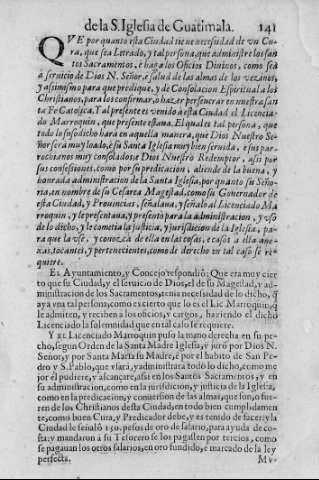 de la S. Iglesia de Guatimala. 141
QVE por quanto esta Ciudad tiene necesidad de vn Cu-
ra, que sea Letrado, y tal persona, que administre los san
tos Sacramentos, è haga los Oficios Divinos, como sea
à servicio de Dios N. Señor, è salud de las almas de los vezinos,
y asimismo para que predique, y de Consolacion Espiritual à los
Christianos, para los confirmar, ò hazer perseverar en nuestra san
ta Fe Catolica. Tal presente es venido à esta Ciudad el Licencia-
do Marroquin, que presente estaua. El qual es tal persona, que
todo lo susodicho hara en aquella manera, que Dios Nuestro Se-
ñor serà muy loado, è su Santa Iglesia muy bien servida, è sus par-
rochianos muy consolados è Dios Nuestro Redemptor, asi por
sus confesiones, como por su predicacion, aliende de la buena, y
honrada administracion de la Santa Iglesia, por quanto su Seño-
ria, en nombre de su Cesarea Magestad, como su Governador de
esta Ciudad, y Provincias, señalaua, y señalò al Licenciado Ma-
rroquin, y le presentaua, y presentò para la administracion, y vso
de lo dicho, y le cometia la justicia, y jurisdicion de la Iglesia, pa-
ra que la vse, y conozca de ella en las cosas, è casos à ella ane-
xas, tocantes, y pertenecientes, como de derecho en tal caso se re-
quiere.
EL Ayuntamiento, y Concejo respondiò; Que era muy cier
to que su Ciudad, y el servicio de Dios, el de su Magestad, y ad-
ministracion de los Sacramentos, tenia necesidad de lo dicho, q̃
aya vna tal persona, como es cierto que lo es el Lic. Marroquin, q̃
le admiten, y reciben a los oficios, y cargos, haziendo el dicho
Licenciado la solemnidad que en tal caso se requiere.
Y el Licenciado Marroquin puso la mano derecha en su pe-
cho, segun Orden de la Santa Madre Iglesia, y jurò por Dios N.
Señor, y por Santa Maria su Madre, è por el habito de San Pe-
dro y S. Pablo, que vsará, y administrará todo lo dicho, como me
jor èl pudiere, y alcançare, assi en los Santos Sacramentos, y en
su administracion, como en la jurisdicion, y justicia de la Iglesia,
como en la predicacion, y conversion de las almas, que son, o fue-
ren de los Christianos desta Ciudad, en todo bien cumplidamen
te, como buen Cura, y Predicador debe, y es tenido de hazer; y la
Ciudad le señalò 150. pesos de oro de salario, para ayuda de cos-
ta; y mandaron à su Tesorero se los pagassen por tercios, como
se pagauan los otros salarios, en oro fundido, è marcado de la ley
perfecta. Mv-